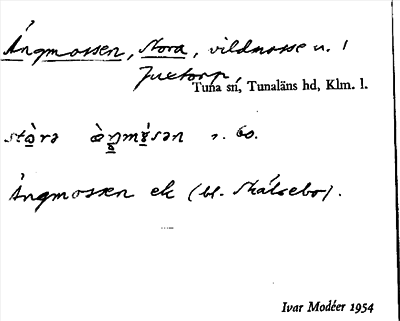 Ängmossen, Stora, vildmosse u. 1
Juetorp,
Tuna sn, Tunaläns hd, Klm. l.
stòrə
Ängmossen ek (bl. Skälsebo).
Ivar Modéer 1954